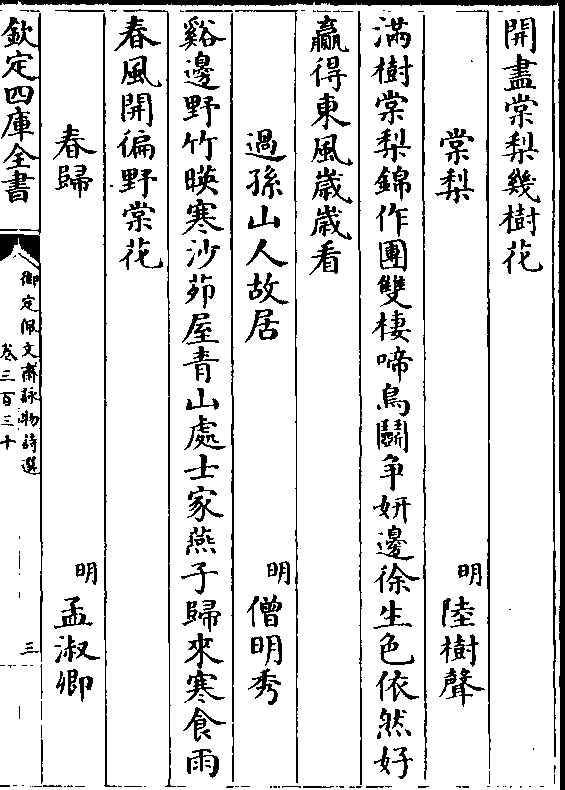 開盡棠梨幾樹花
棠梨 明 陸樹聲
滿樹棠梨錦作團雙棲啼鳥鬭争妍邊徐生色依然好
贏得東風歲歲看
過孫山人故居 明 僧明秀
谿邊野竹暎寒沙茆屋青山處士家燕子歸來寒食雨
春風開徧野棠花
春歸 明 孟淑卿
欽定四庫全書 御定佩文齋詠物詩選 卷三百三十 三